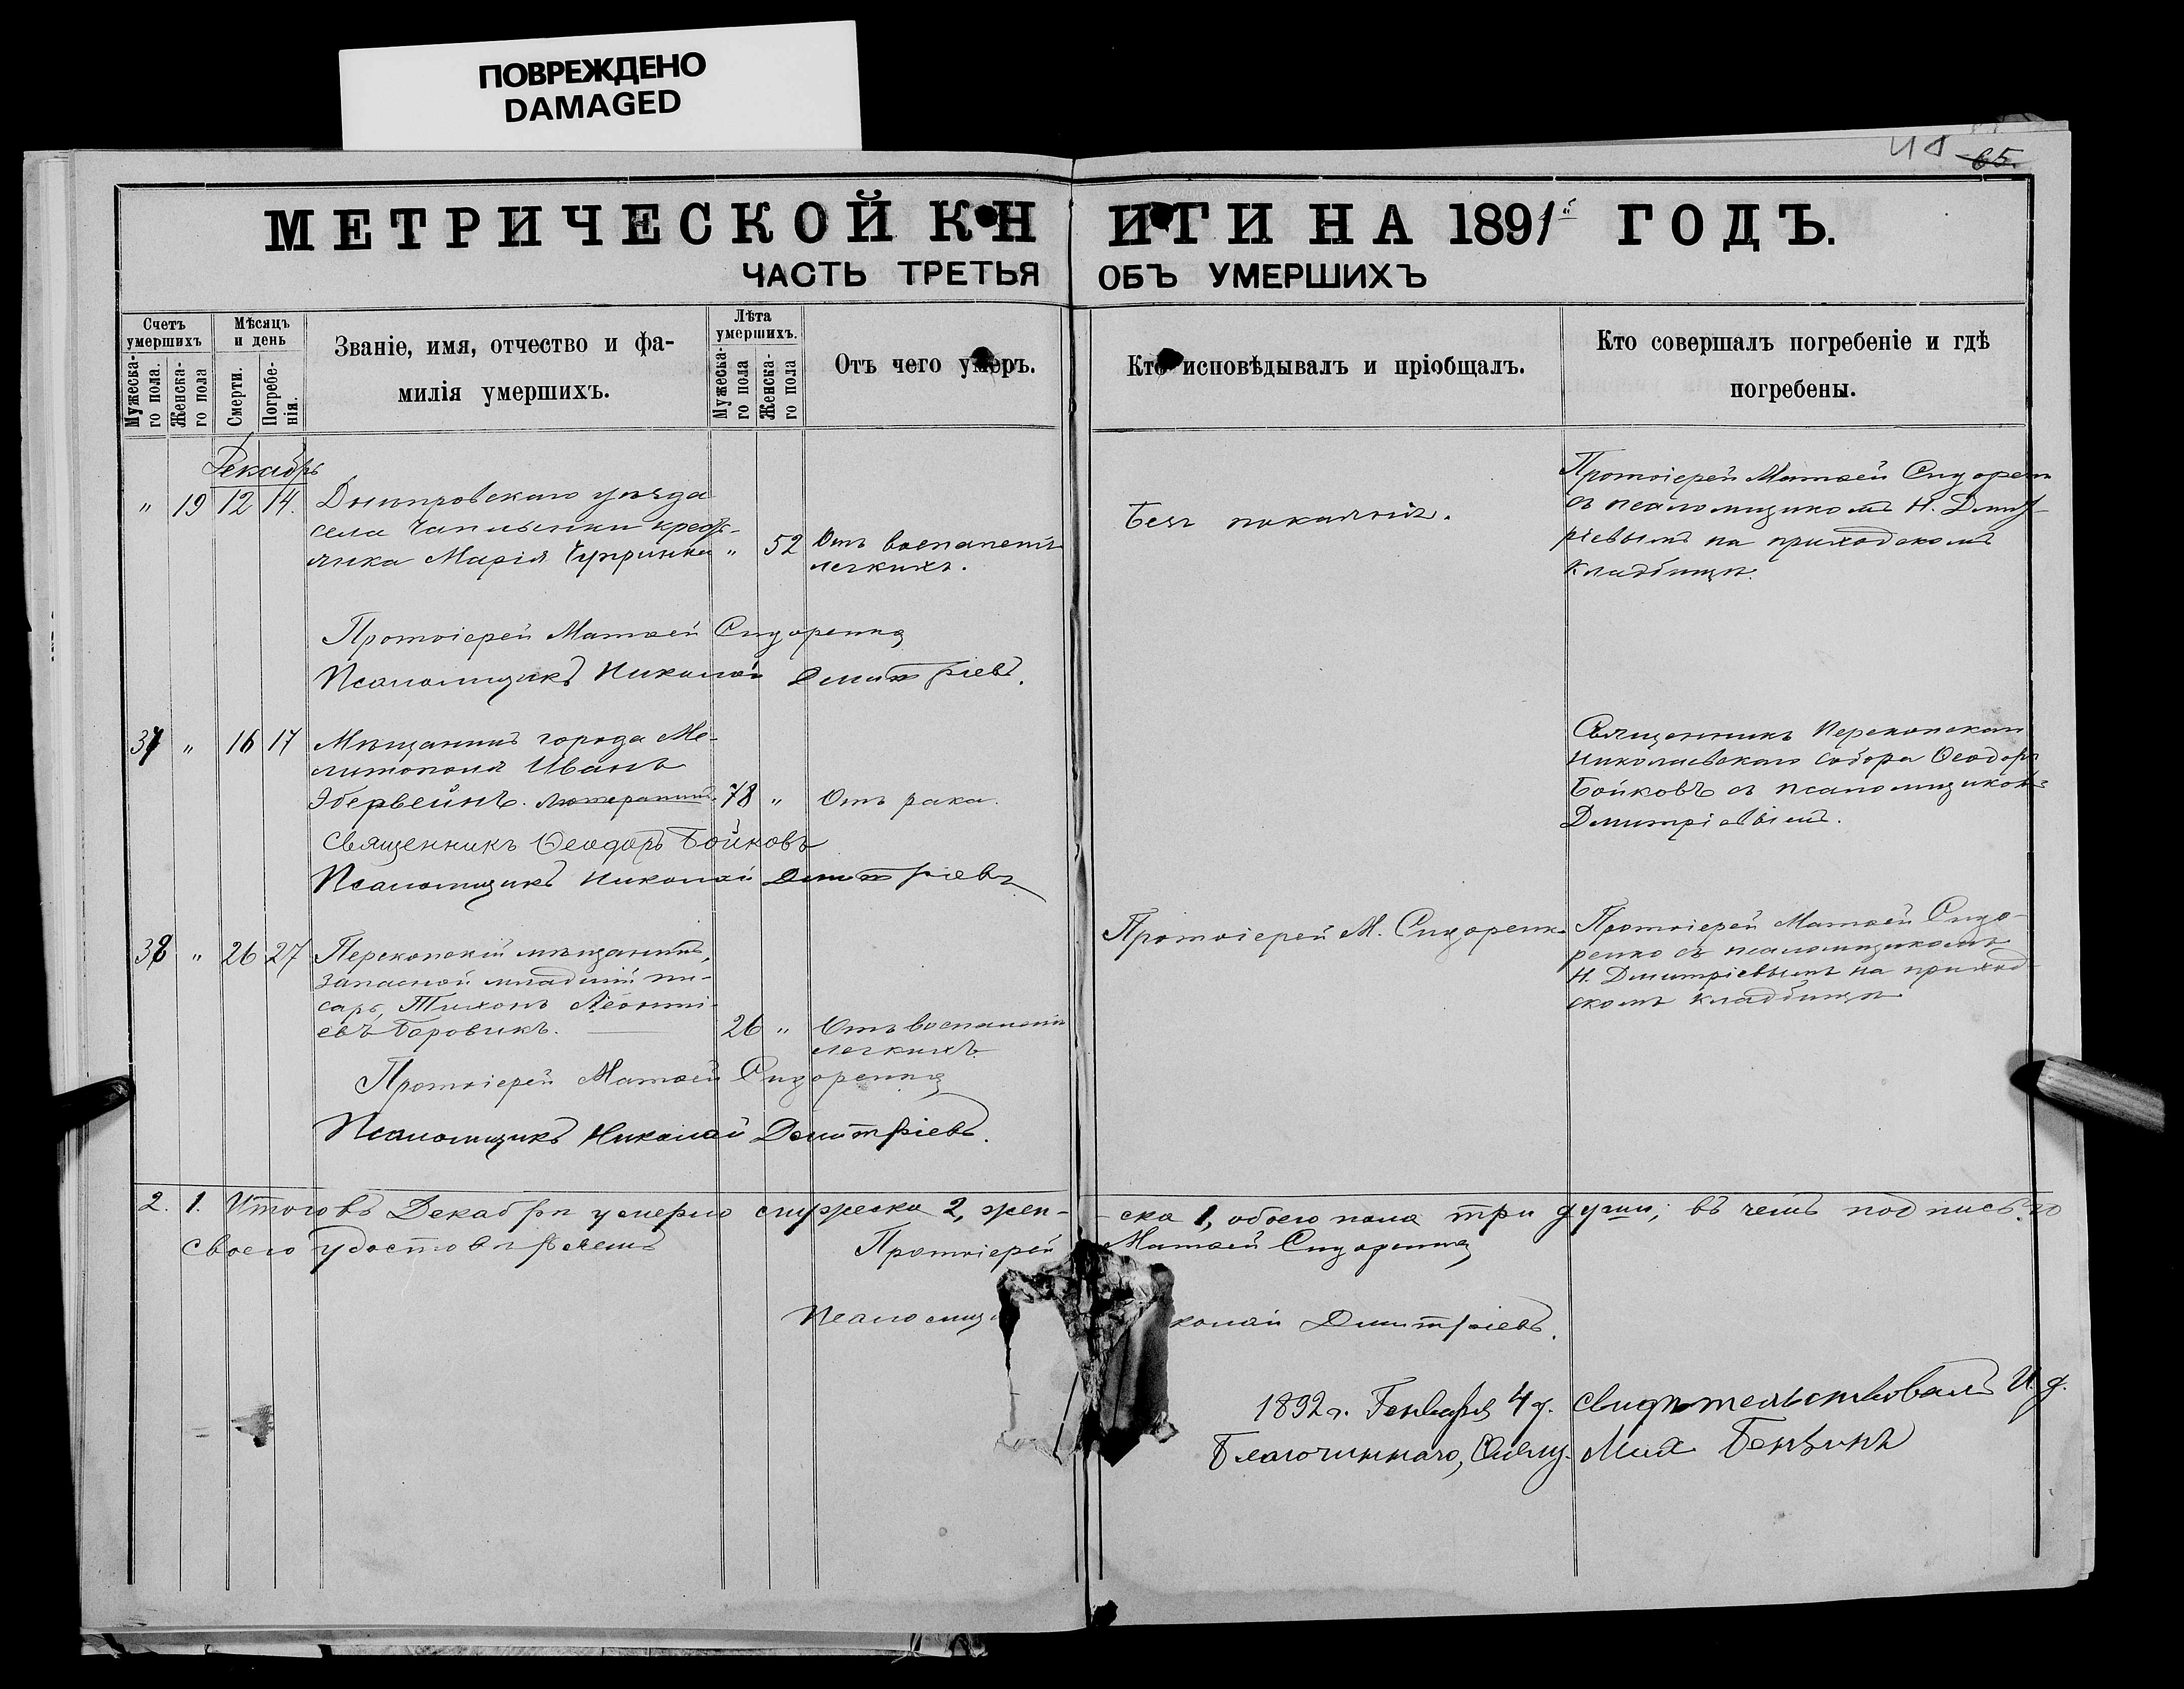 ПОВРЕЖДЕНО
DAMAGED
65.
МЕТРИЧЕСКОЙ КНИГИ НА 1891й ГОДЪ.
ЧАСТЬ ТРЕТЬЯ ОБЪ УМЕРШИХЪ
Счетъ умершихъ
Мужеска-
го пола.
Женска-
го пола
Мѣсяцъ и день
Смерти.
Погребе-
нія.
Званіе, имя, отчество и фа-
милія умершихъ.
Лѣта умершихъ.
Мужеска-
го пола
Женска-
го пола
Отъ чего умеръ.
Кто исповѣдывалъ и пріобщалъ.
Кто совершалъ погребеніе и гдѣ
погребены.
Декабрь
" 19 12 14. Днѣпровскаго уѣзда
села Чаплынки кресть-
янка Марія Чуприна " 52 Отъ воспаленія
легкихъ.
Безъ покаянія.
Протоіерей Матѳей Сидоренко
съ псаломщикомъ Н. Дмит-
ріевымъ на приходскомъ
кладбищѣ.
Протоіерей Матѳей Сидоренко
Псаломщикъ Николай Дмитріевъ.
37 " 16 17 Мѣщанинъ города Ме-
литополя Иванъ
Эбервейнъ. лютеранинъ. 78 " Отъ рака.
Священникъ Перекопскаго
Николаевскаго собора Ѳеодоръ
Бойковъ съ псаломщикомъ
Дмитріевымъ.
Священникъ Ѳеодоръ Бойковъ
Псаломщикъ Николай Дмитріевъ
38 " 26 27 Перекопскій мѣщанинъ,
запасной младшій пи-
сарь, Тихонъ Леонті-
евъ Боровикъ. 26 " Отъ воспаленія
легкихъ.
Протоіерей М. Сидоренко
Протоіерей Матѳей Сидо-
ренко съ псаломщикомъ
Н. Дмитріевымъ на приход-
скомъ кладбищѣ
Протоіерей Матѳей Сидоренко
Псаломщикъ Николай Дмитріевъ.
2. 1. Итого въ Декабрѣ умерло мужеска 2, жен-ска 1, обоего пола три души; въ чемъ подписью
своею удостовѣряемъ Протоіерей Матѳей Сидоренко
Псаломщ колай Дмитріевъ.
1892 г. Генваря 4 д. свидѣтельствовалъ И. д.
Благочиннаго, Свящ. Мих.